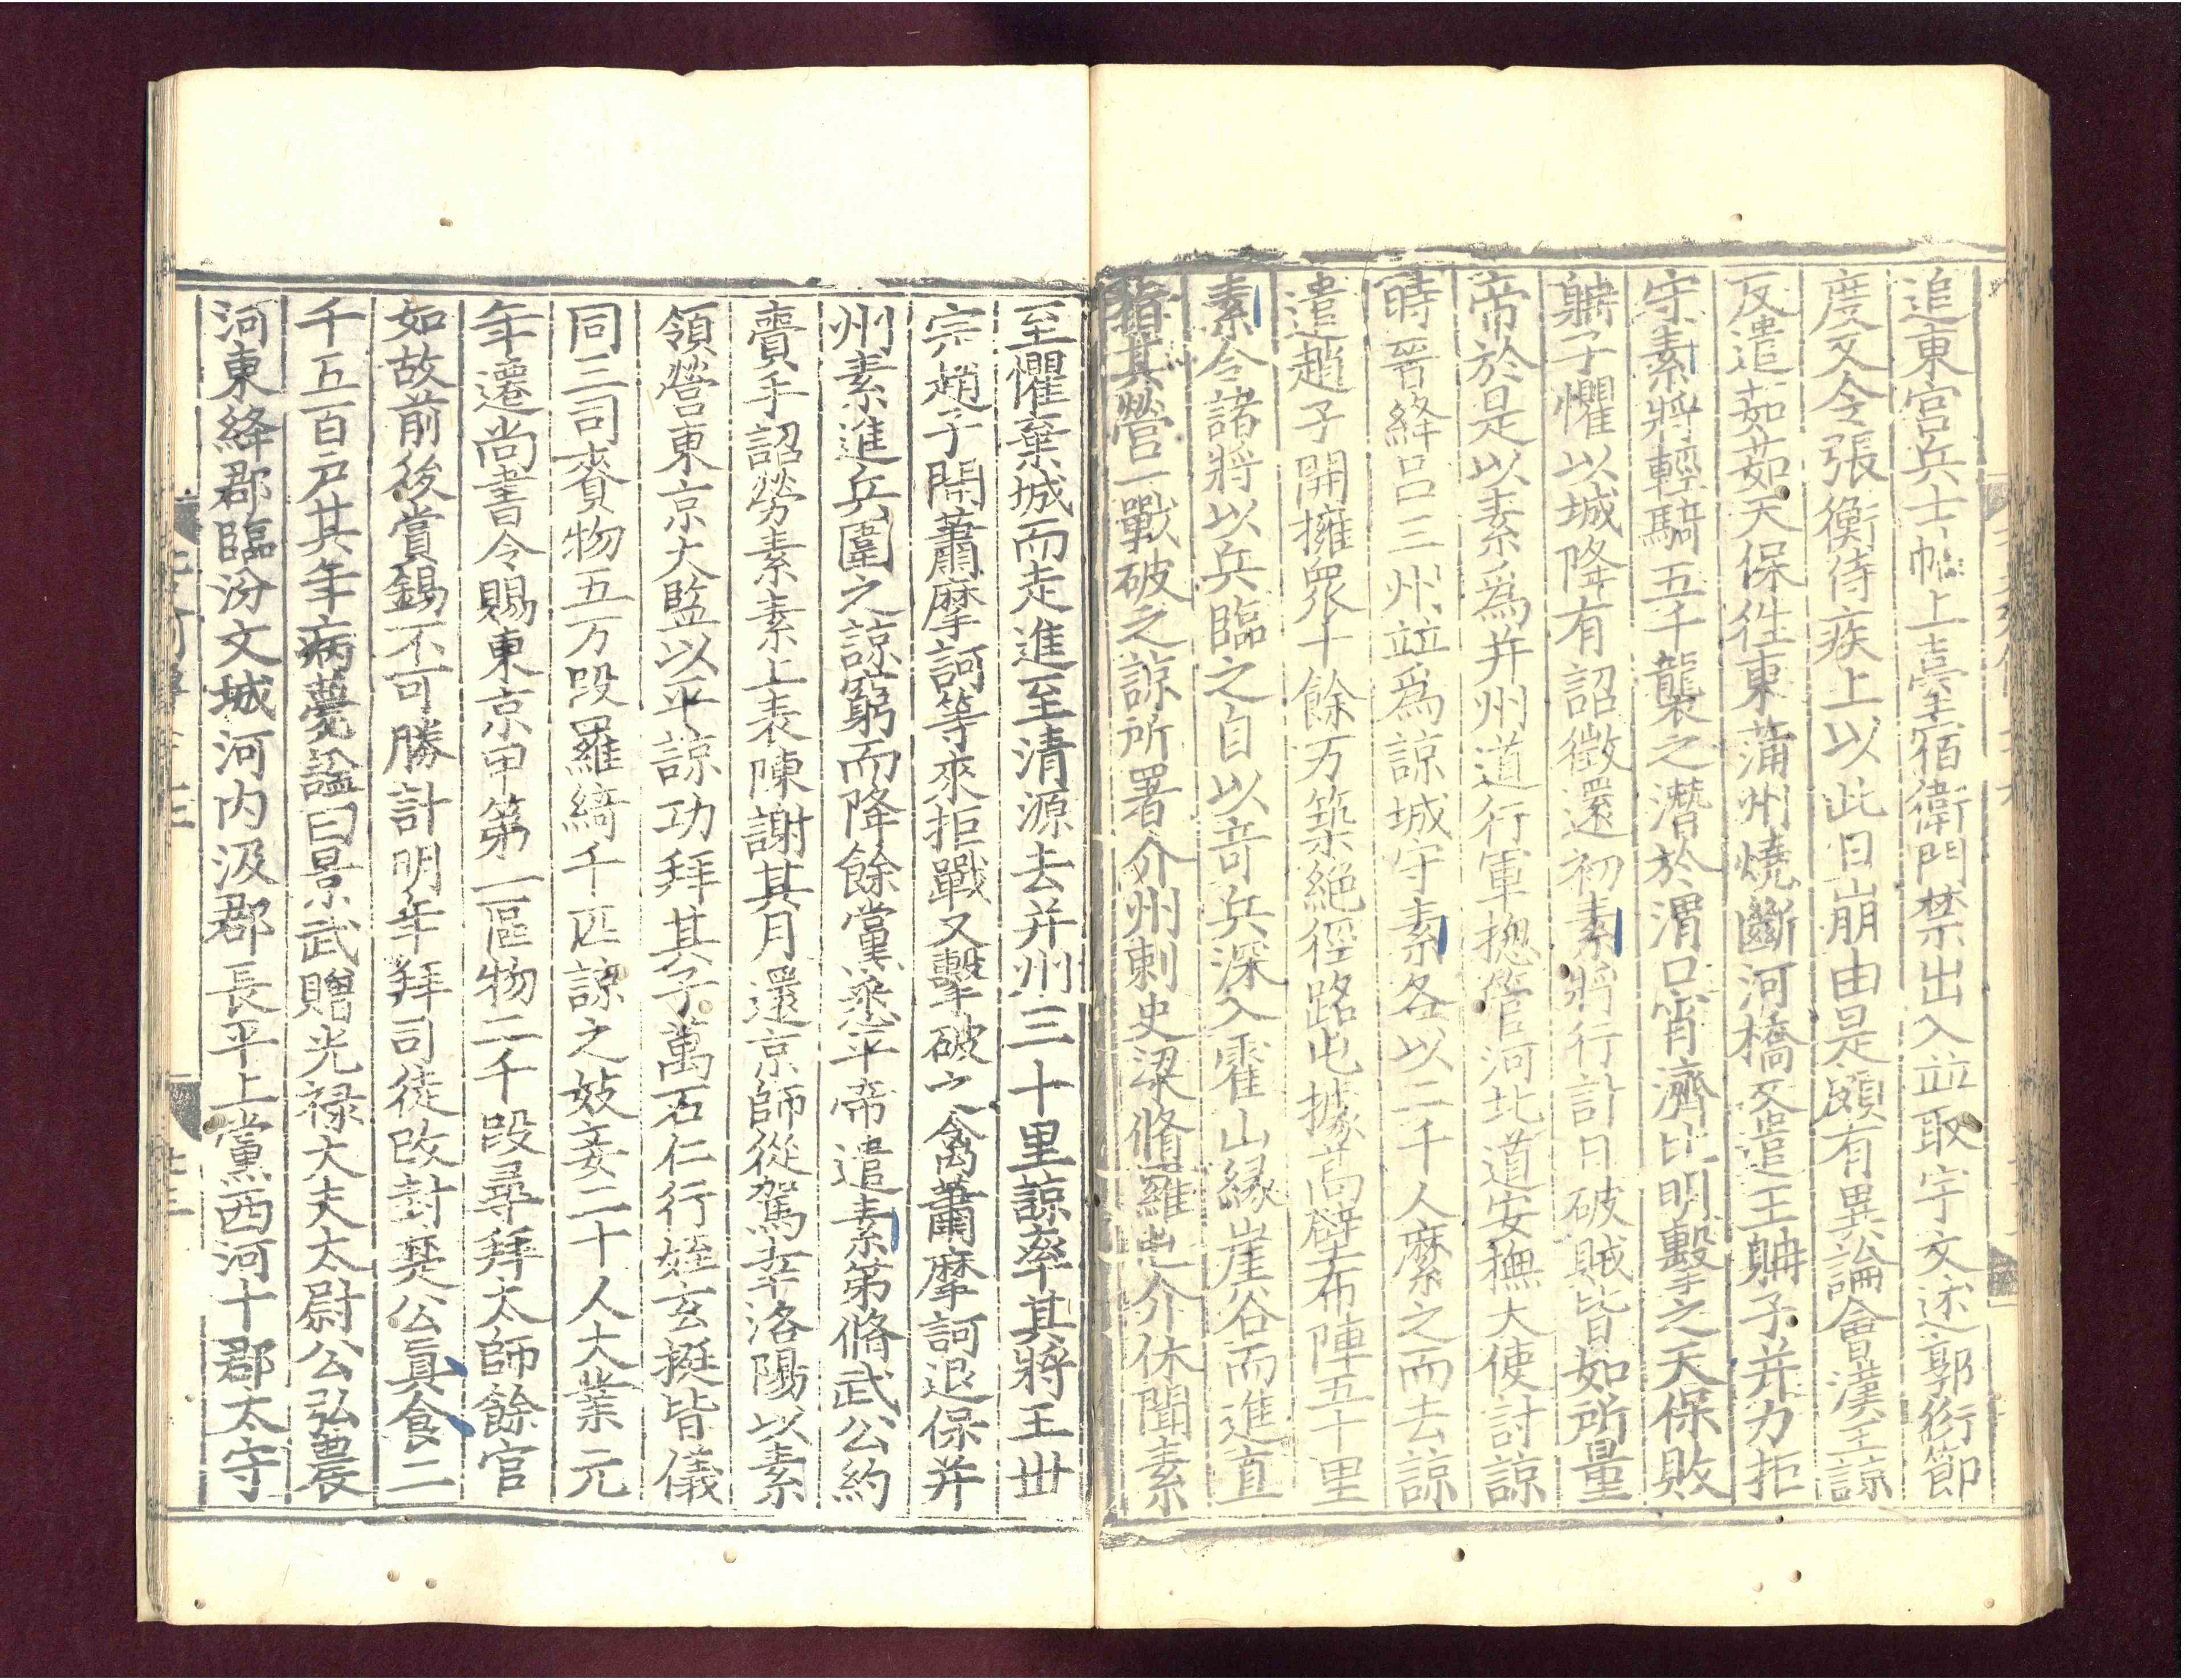 追東宮兵士帖上臺宿衛門禁出入竝取宇文述郭衍節
度又令張衡侍疾上以此日崩由是頗有異論會漢王諒
反遣茹茹天保往東蒲州燒斷河橋又遣王聃子并力拒
守素將輕騎五千襲之潛於渭口宵濟比明擊之天保敗
聃子懼以城降有詔徵還初素將行計日破賊皆如所量
帝於是以素爲并州道行軍揔管河北道安撫大使討諒
時晉絳呂三州竝爲諒城守素各以二千人縻之而去諒
遣趙子開擁眾十餘万築絕徑路屯據高壁布陣五十里
素令諸將以兵臨之自以奇兵深入霍山緣崖谷而進直
指其營一戰破之諒所署介州刺史梁脩羅屯介休聞素
至懼棄城而走進至清源去并州三十里諒率其將王丗
宗趙子開蕭摩訶等來拒戰又擊破之禽蕭摩訶退保并
州素進兵圍之諒窮而降餘黨悉平帝遣素弟脩武公約
賷手詔勞素素上表陳謝其月還京師從駕幸洛陽以素
領營東京大監以平諒功拜其子萬石仁行姪玄挺皆儀
同三司賚物五万段羅綺千匹諒之妓妾二十人大業元
年遷尚書令賜東京甲第一區物二千段尋拜太師餘官
如故前後賞錫不可勝計明年拜司徒改封楚公真食二
千五百户其年病薨謚曰景武贈光祿大夫太尉公弘農
河東絳郡臨汾文城河内汲郡長平上黨西河十郡太守